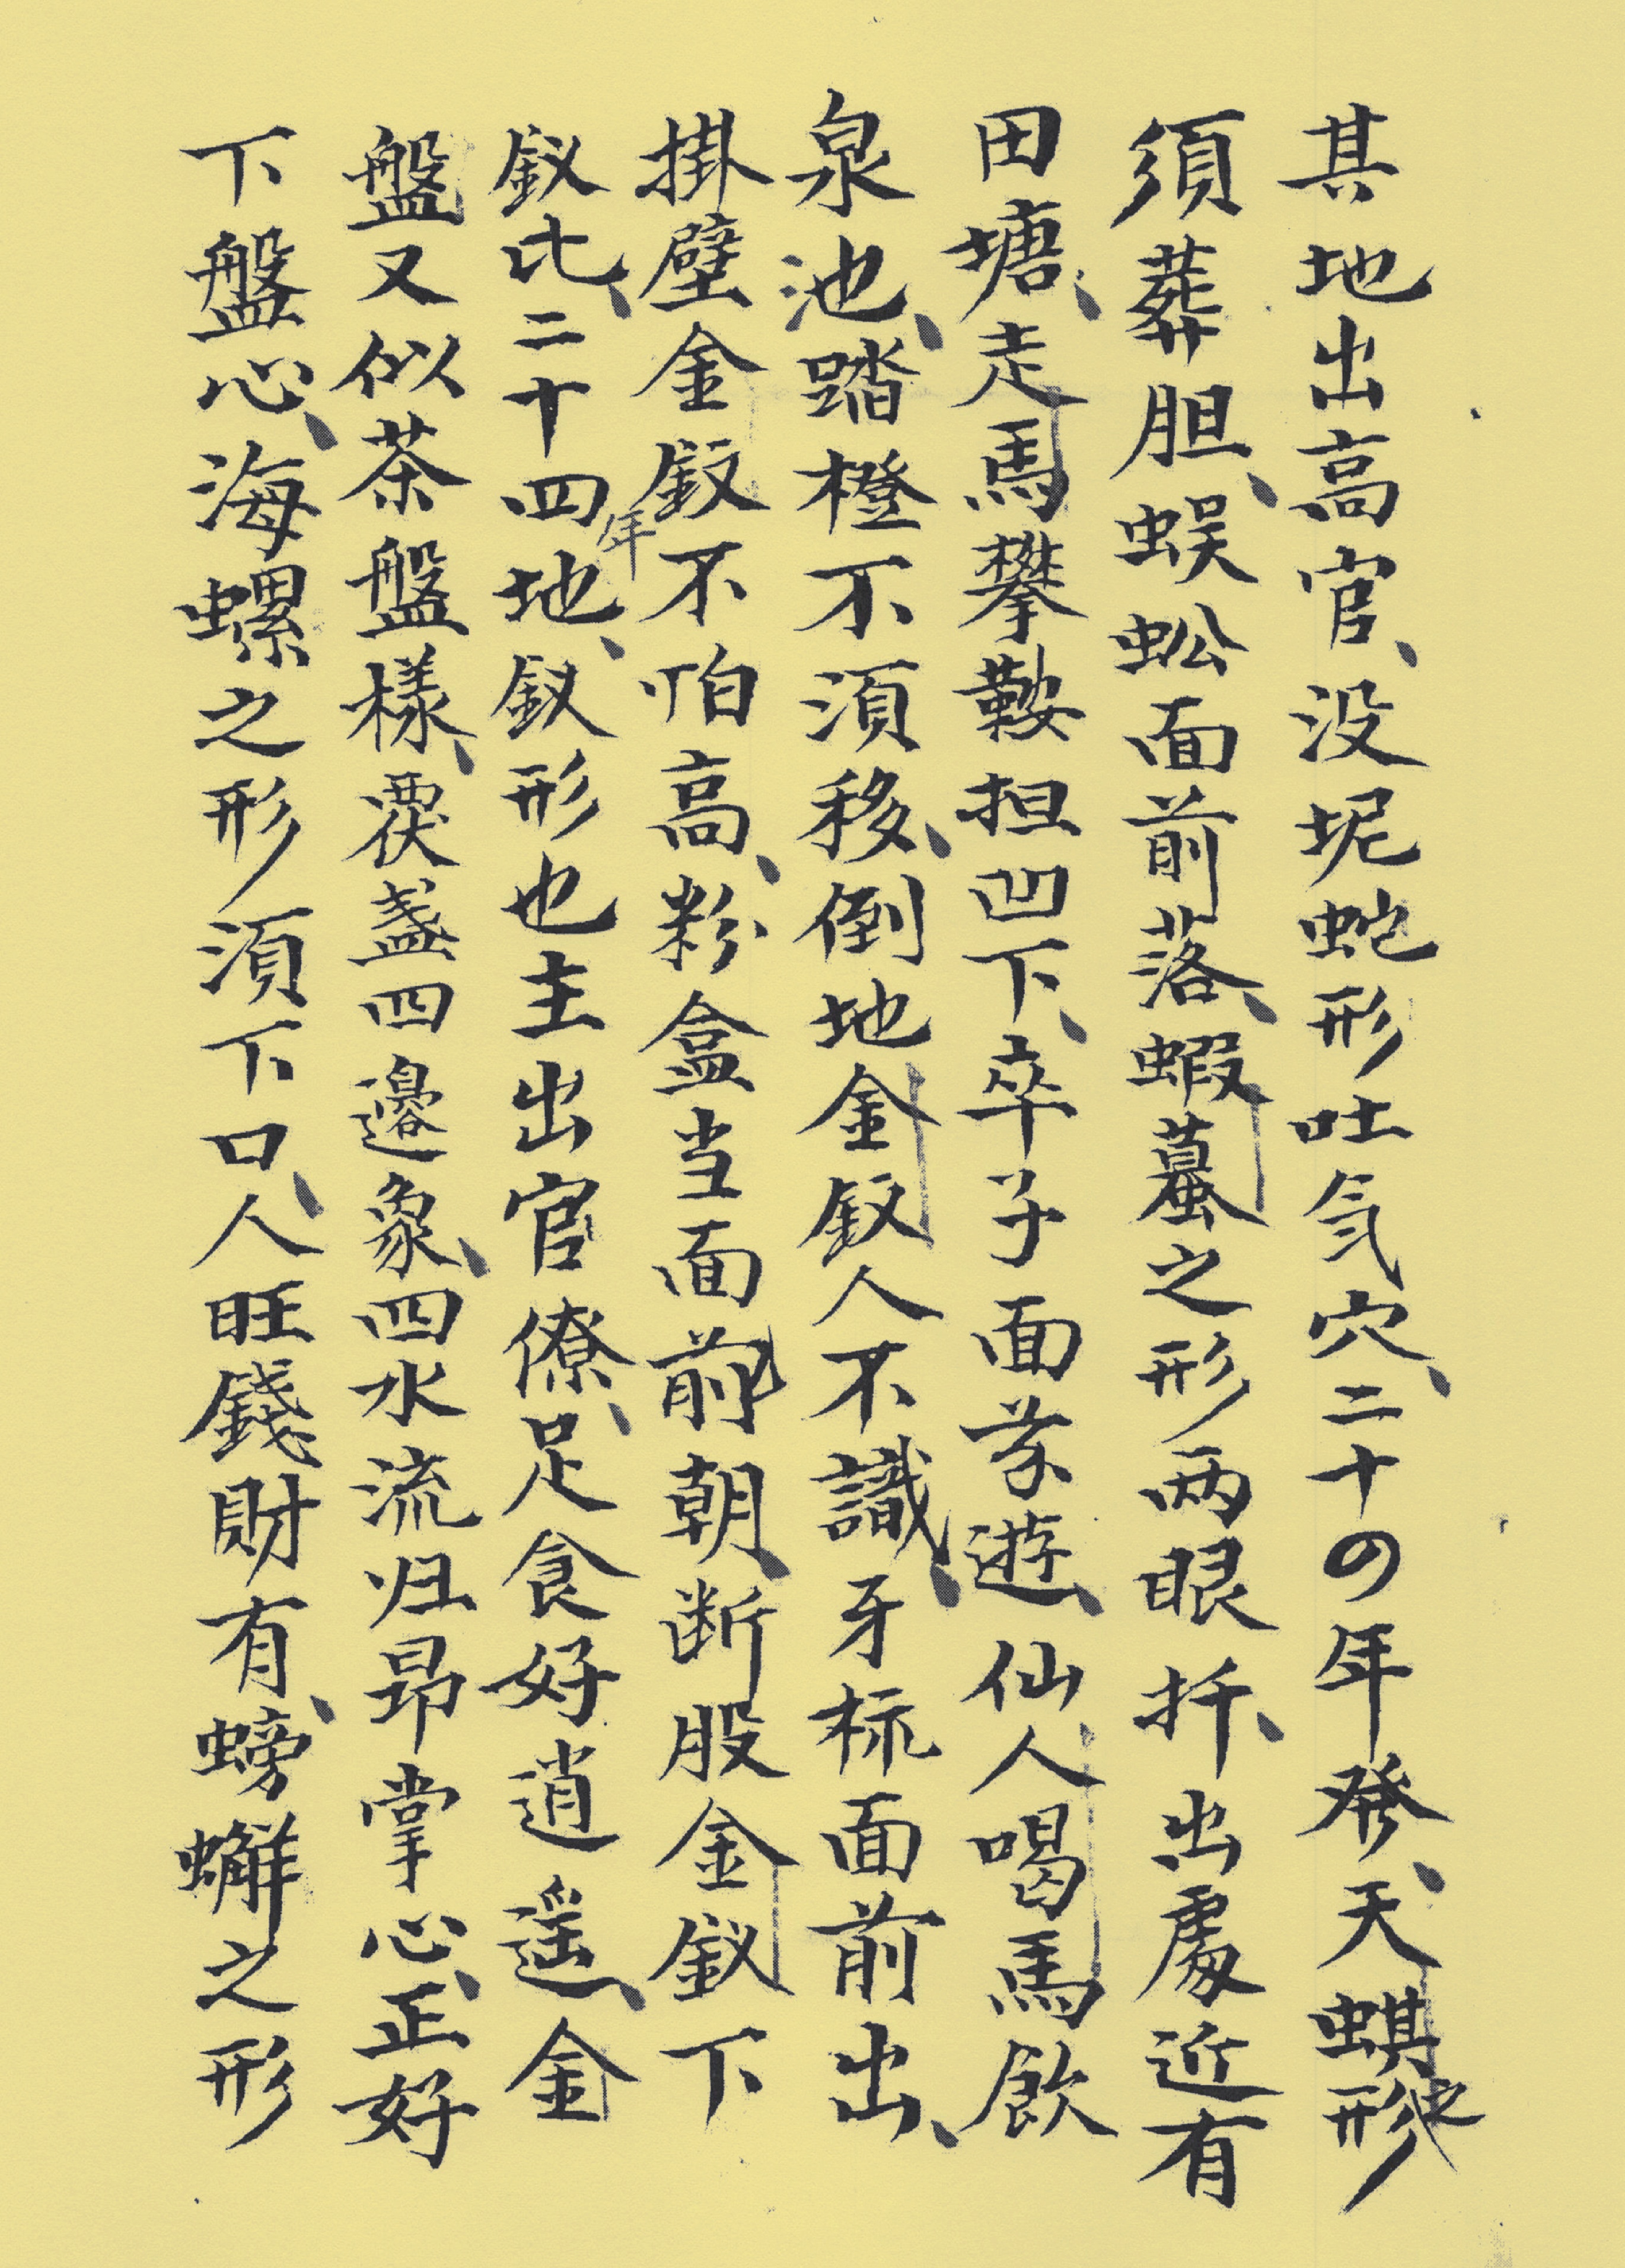 其地出高官、没坭蛇形吐气穴、二十の年発、天蜞之形
須葬胆、蜈蚣面前落、蝦蟇之形两眼扦、出處近有
田塘、走馬攀鞍担凹下、卒子面前遊、仙人喝馬飲
泉池、踏橙不須移、倒地金釵人不識、牙标面前出、
掛壁金釵不怕高、粉盒当面前朝、断股金釵下
釵比、二十四年地、釵形也主出官僚、足食好逍遥、金
盤又似茶盤様、覆盞四邊象、四水流归昂掌心、正好
下盤心、海螺之形須下口、人旺錢財有、螃蠏之形